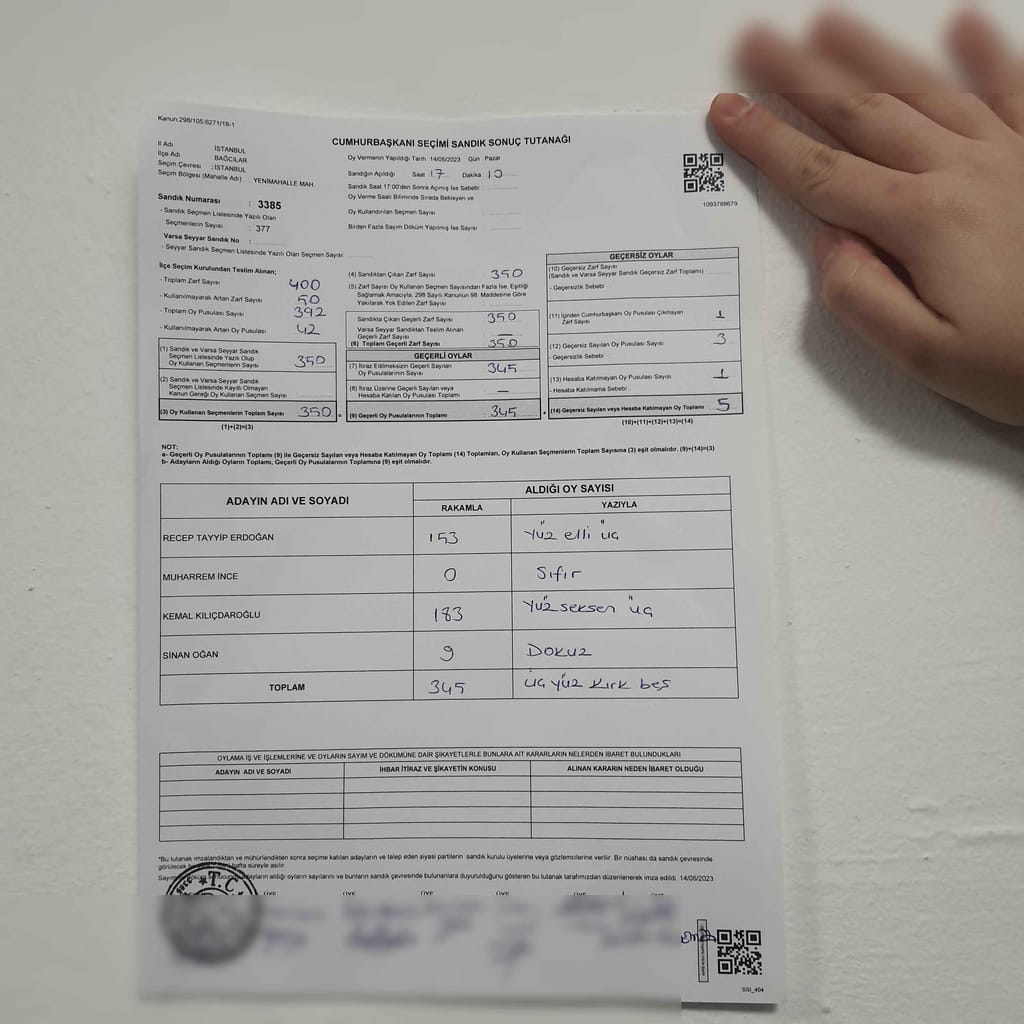 Kanun:298/105;6271/18-1
CUMHURBAŞKANI SEÇİMİ SANDIK SONUÇ TUTANAĞI
İl Adı : İSTANBUL
İlçe Adı : BAĞCILAR
Seçim Çevresi : İSTANBUL
Seçim Bölgesi (Mahalle Adı) : YENİMAHALLE MAH.
Oy Vermenin Yapıldığı Tarih :14/05/2023 Gün : Pazar
Sandığın Açıldığı Saat 17 Dakika 10
Sandık Saat 17:00'den Sonra Açılmış İse Sebebi
Oy Verme Saati Bitiminde Sırada Bekleyen ve
Oy Kullandırılan Seçmen Sayısı
Birden Fazla Sayım Döküm Yapılmış İse Sayısı
1093788679
Sandık Numarası : 3385
- Sandık Seçmen Listesinde Yazılı Olan
Seçmenlerin Sayısı : 377
Varsa Seyyar Sandık No :
- Seyyar Sandık Seçmen Listesinde Yazılı Olan Seçmen Sayısı
İlçe Seçim Kurulundan Teslim Alınan;
- Toplam Zarf Sayısı 400
- Kullanılmayarak Artan Zarf Sayısı 50
- Toplam Oy Pusulası Sayısı 392
- Kullanılmayarak Artan Oy Pusulası 42
(1) Sandık ve Varsa Seyyar Sandık
Seçmen Listesinde Yazılı Olup
Oy Kullanan Seçmenlerin Sayısı 350
(2) Sandık ve Varsa Seyyar Sandık
Seçmen Listesinde Kayıtlı Olmayan
Kanun Gereği Oy Kullanan Seçmen Sayısı
(3) Oy Kullanan Seçmenlerin Toplam Sayısı 350 =
(1)+(2)=(3)
(4) Sandıktan Çıkan Zarf Sayısı 350
(5) Zarf Sayısı Oy Kullanan Seçmen Sayısından Fazla İse, Eşitliği
Sağlamak Amacıyla, 298 Sayılı Kanunun 98. Maddesine Göre
Yakılarak Yok Edilen Zarf Sayısı
Sandıkta Çıkan Geçerli Zarf Sayısı 350
Varsa Seyyar Sandıktan Teslim Alınan
Geçerli Zarf Sayısı —
(6) Toplam Geçerli Zarf Sayısı 350
GEÇERLİ OYLAR
(7) İtiraz Edilmeksizin Geçerli Sayılan
Oy Pusulalarının Sayısı 345
(8) İtiraz Üzerine Geçerli Sayılan veya
Hesaba Katılan Oy Pusulası Toplamı —
(9) Geçerli Oy Pusulalarının Toplamı 345 +
GEÇERSİZ OYLAR
(10) Geçersiz Zarf Sayısı
(Sandık ve Varsa Seyyar Sandık Geçersiz Zarf Toplamı)
- Geçersizlik Sebebi
(11) İçinden Cumhurbaşkanı Oy Pusulası Çıkmayan
Zarf Sayısı 1
(12) Geçersiz Sayılan Oy Pusulası Sayısı 3
- Geçersizlik Sebebi
(13) Hesaba Katılmayan Oy Pusulası Sayısı 1
- Hesaba Katılmama Sebebi
(14) Geçersiz Sayılan veya Hesaba Katılmayan Oy Toplamı 5
(10)+(11)+(12)+(13)=(14)
NOT:
a- Geçerli Oy Pusulalarının Toplamı (9) ile Geçersiz Sayılan veya Hesaba Katılmayan Oy Toplamı (14) Toplamları, Oy Kullanan Seçmenlerin Toplam Sayısına (3) eşit olmalıdır. (9)+(14)=(3)
b- Adayların Aldığı Oyların Toplamı, Geçerli Oy Pusulalarının Toplamına (9) eşit olmalıdır.
ADAYIN ADI VE SOYADI ALDIĞI OY SAYISI
RAKAMLA YAZIYLA
RECEP TAYYİP ERDOĞAN 153 Yüz elli üç
MUHARREM İNCE 0 Sıfır
KEMAL KILIÇDAROĞLU 183 Yüz seksen üç
SİNAN OĞAN 9 Dokuz
TOPLAM 345 üç yüz kırk beş
OYLAMA İŞ VE İŞLEMLERİNE VE OYLARIN SAYIM VE DÖKÜMÜNE DAİR ŞİKAYETLERLE BUNLARA AİT KARARLARIN NELERDEN İBARET BULUNDUKLARI
ADAYIN ADI VE SOYADI İHBAR İTİRAZ VE ŞİKAYETİN KONUSU ALINAN KARARIN NEDEN İBARET OLDUĞU
*Bu tutanak imzalandıktan ve mühürlendikten sonra seçime katılan adayların ve talep eden siyasi partilerin sandık kurulu üyelerine veya gözlemcilerine verilir. Bir nüshası da sandık çevresinde
görülecek bir hafta süreyle asılır.
adayların aldığı oyların sayılarını ve bunların sandık çevresinde bulunanlara duyurulduğunu gösteren bu tutanak tarafımızdan düzenlenerek imza edildi. 14/05/2023
ÜYE ÜYE ÜYE ÜYE ÜYE
T.C.
SSI_404